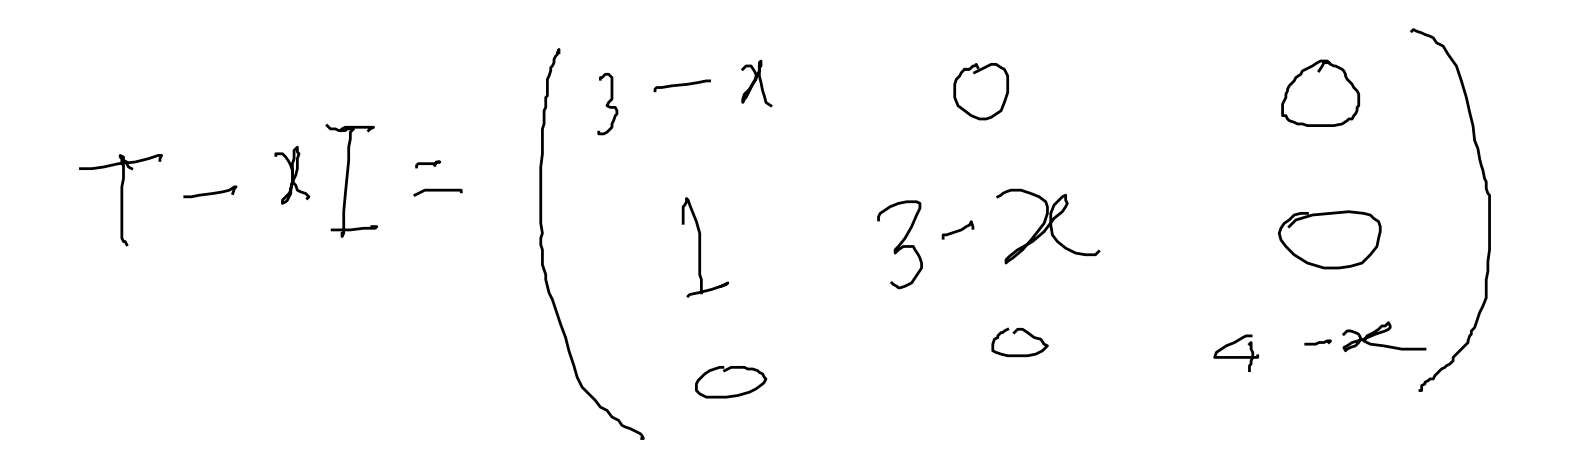 T - xI = ( 3 - x 0 0
1 3 - x 0
0 0 4 - x )